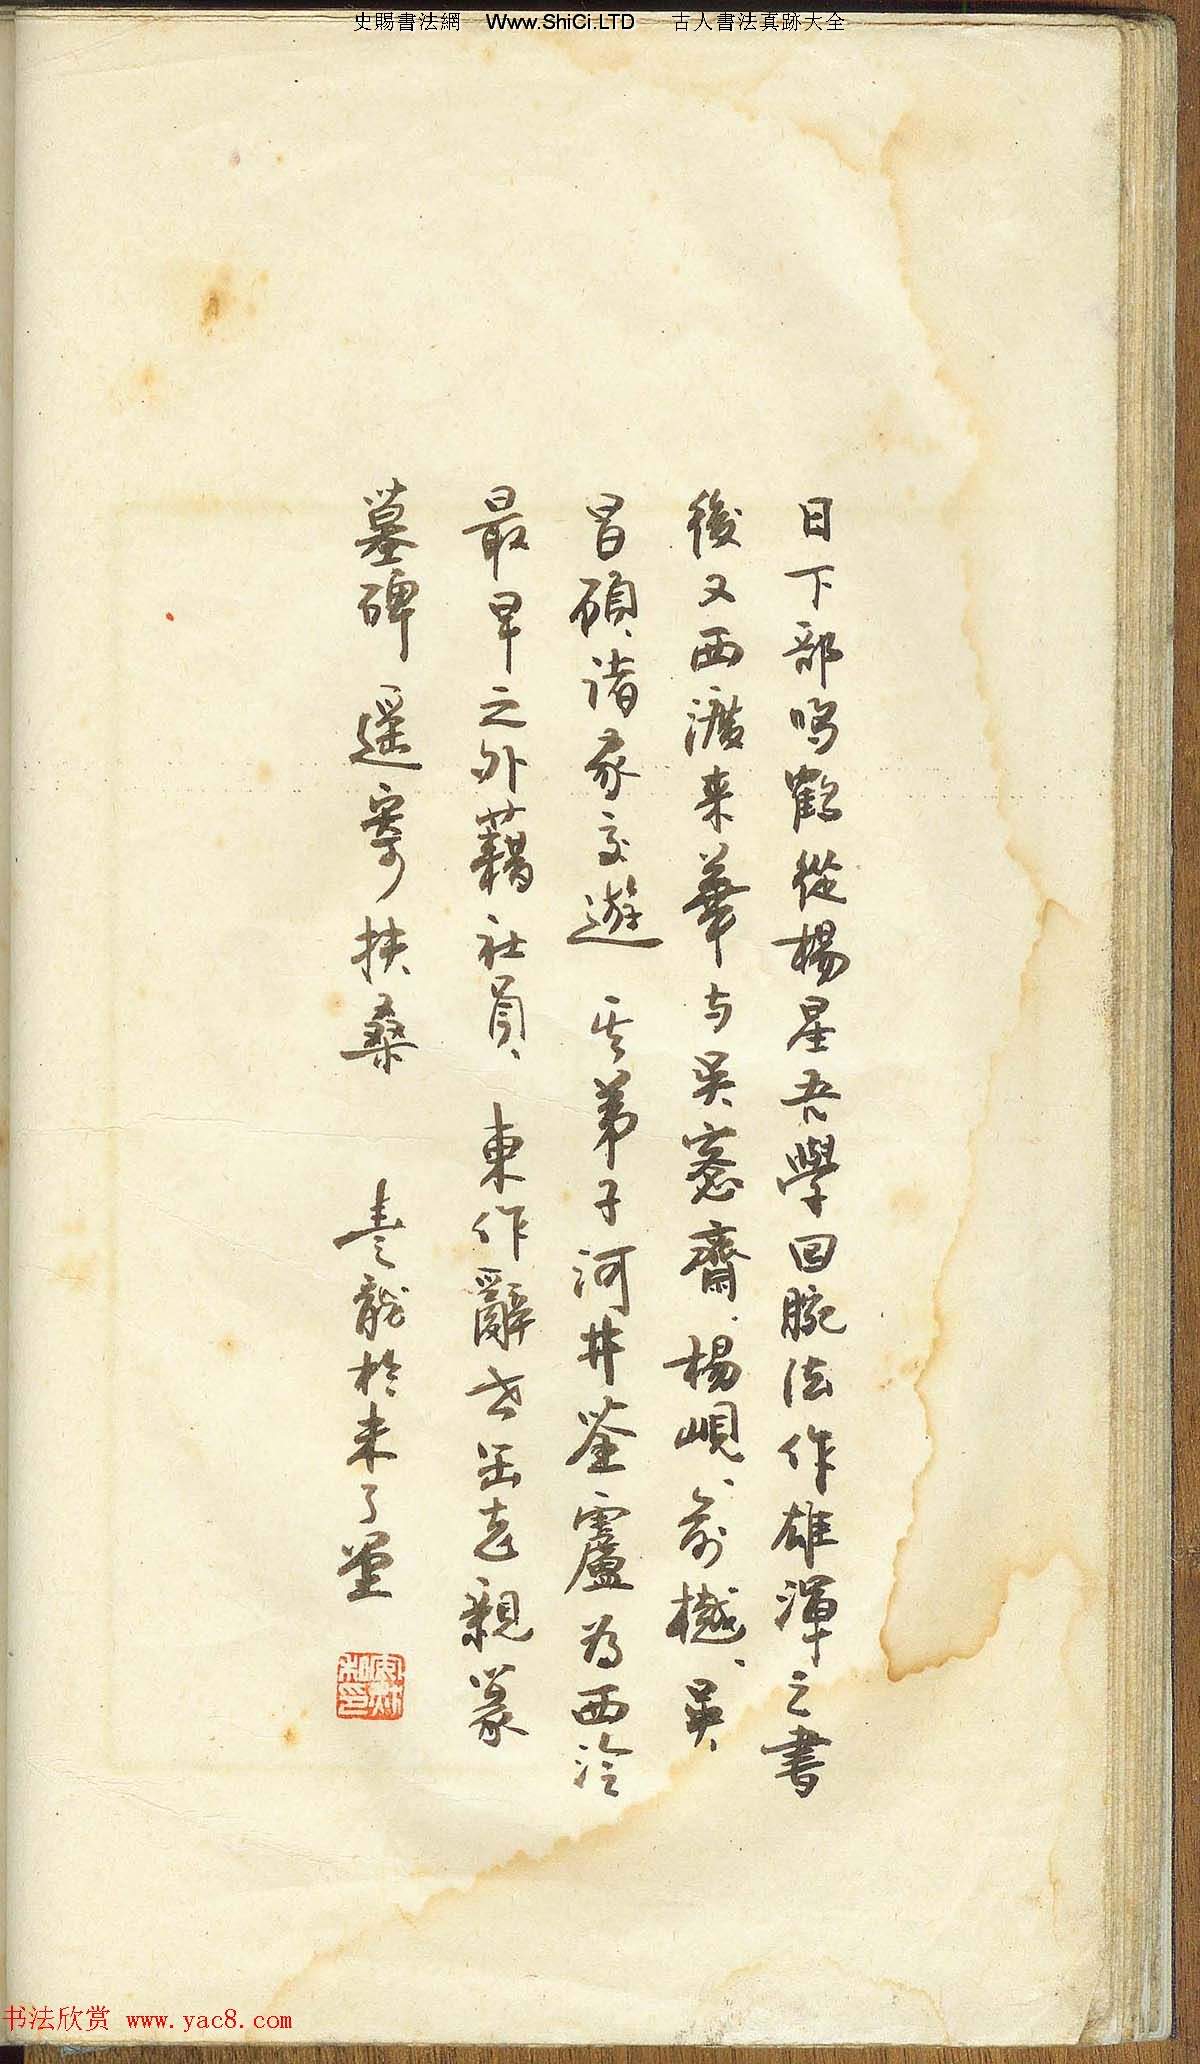 史賜書法網 Www.ShiCi.LTD 古人書法真跡大全
日下部鳴鶴從楊星吾學回腕法作雄渾之書
後又西渡来華与吴愙齋、楊峴、俞樾、吴
昌碩、诸家交遊 其弟子河井荃廬為西泠
最早之外藉社員、東作辭世缶老親篆
墓碑 遥寄扶桑 龍於未了堂
书法欣赏 www.yac8.com